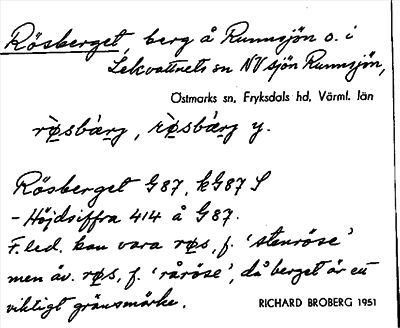 Rösberget, berg å Runnsjön o. i
Lekvattnets sn NV sjön Runnsjön,
Östmarks sn, Fryksdals hd, Värml. län
Rösberget G87, kG87 S
- Höjdsiffra 414 å G87.
F. led. kan vara røs, f. 'stenröse'
men äv. røs, f. 'råröse', då berget är ett
viktigt gränsmärke.
RICHARD BROBERG 1951